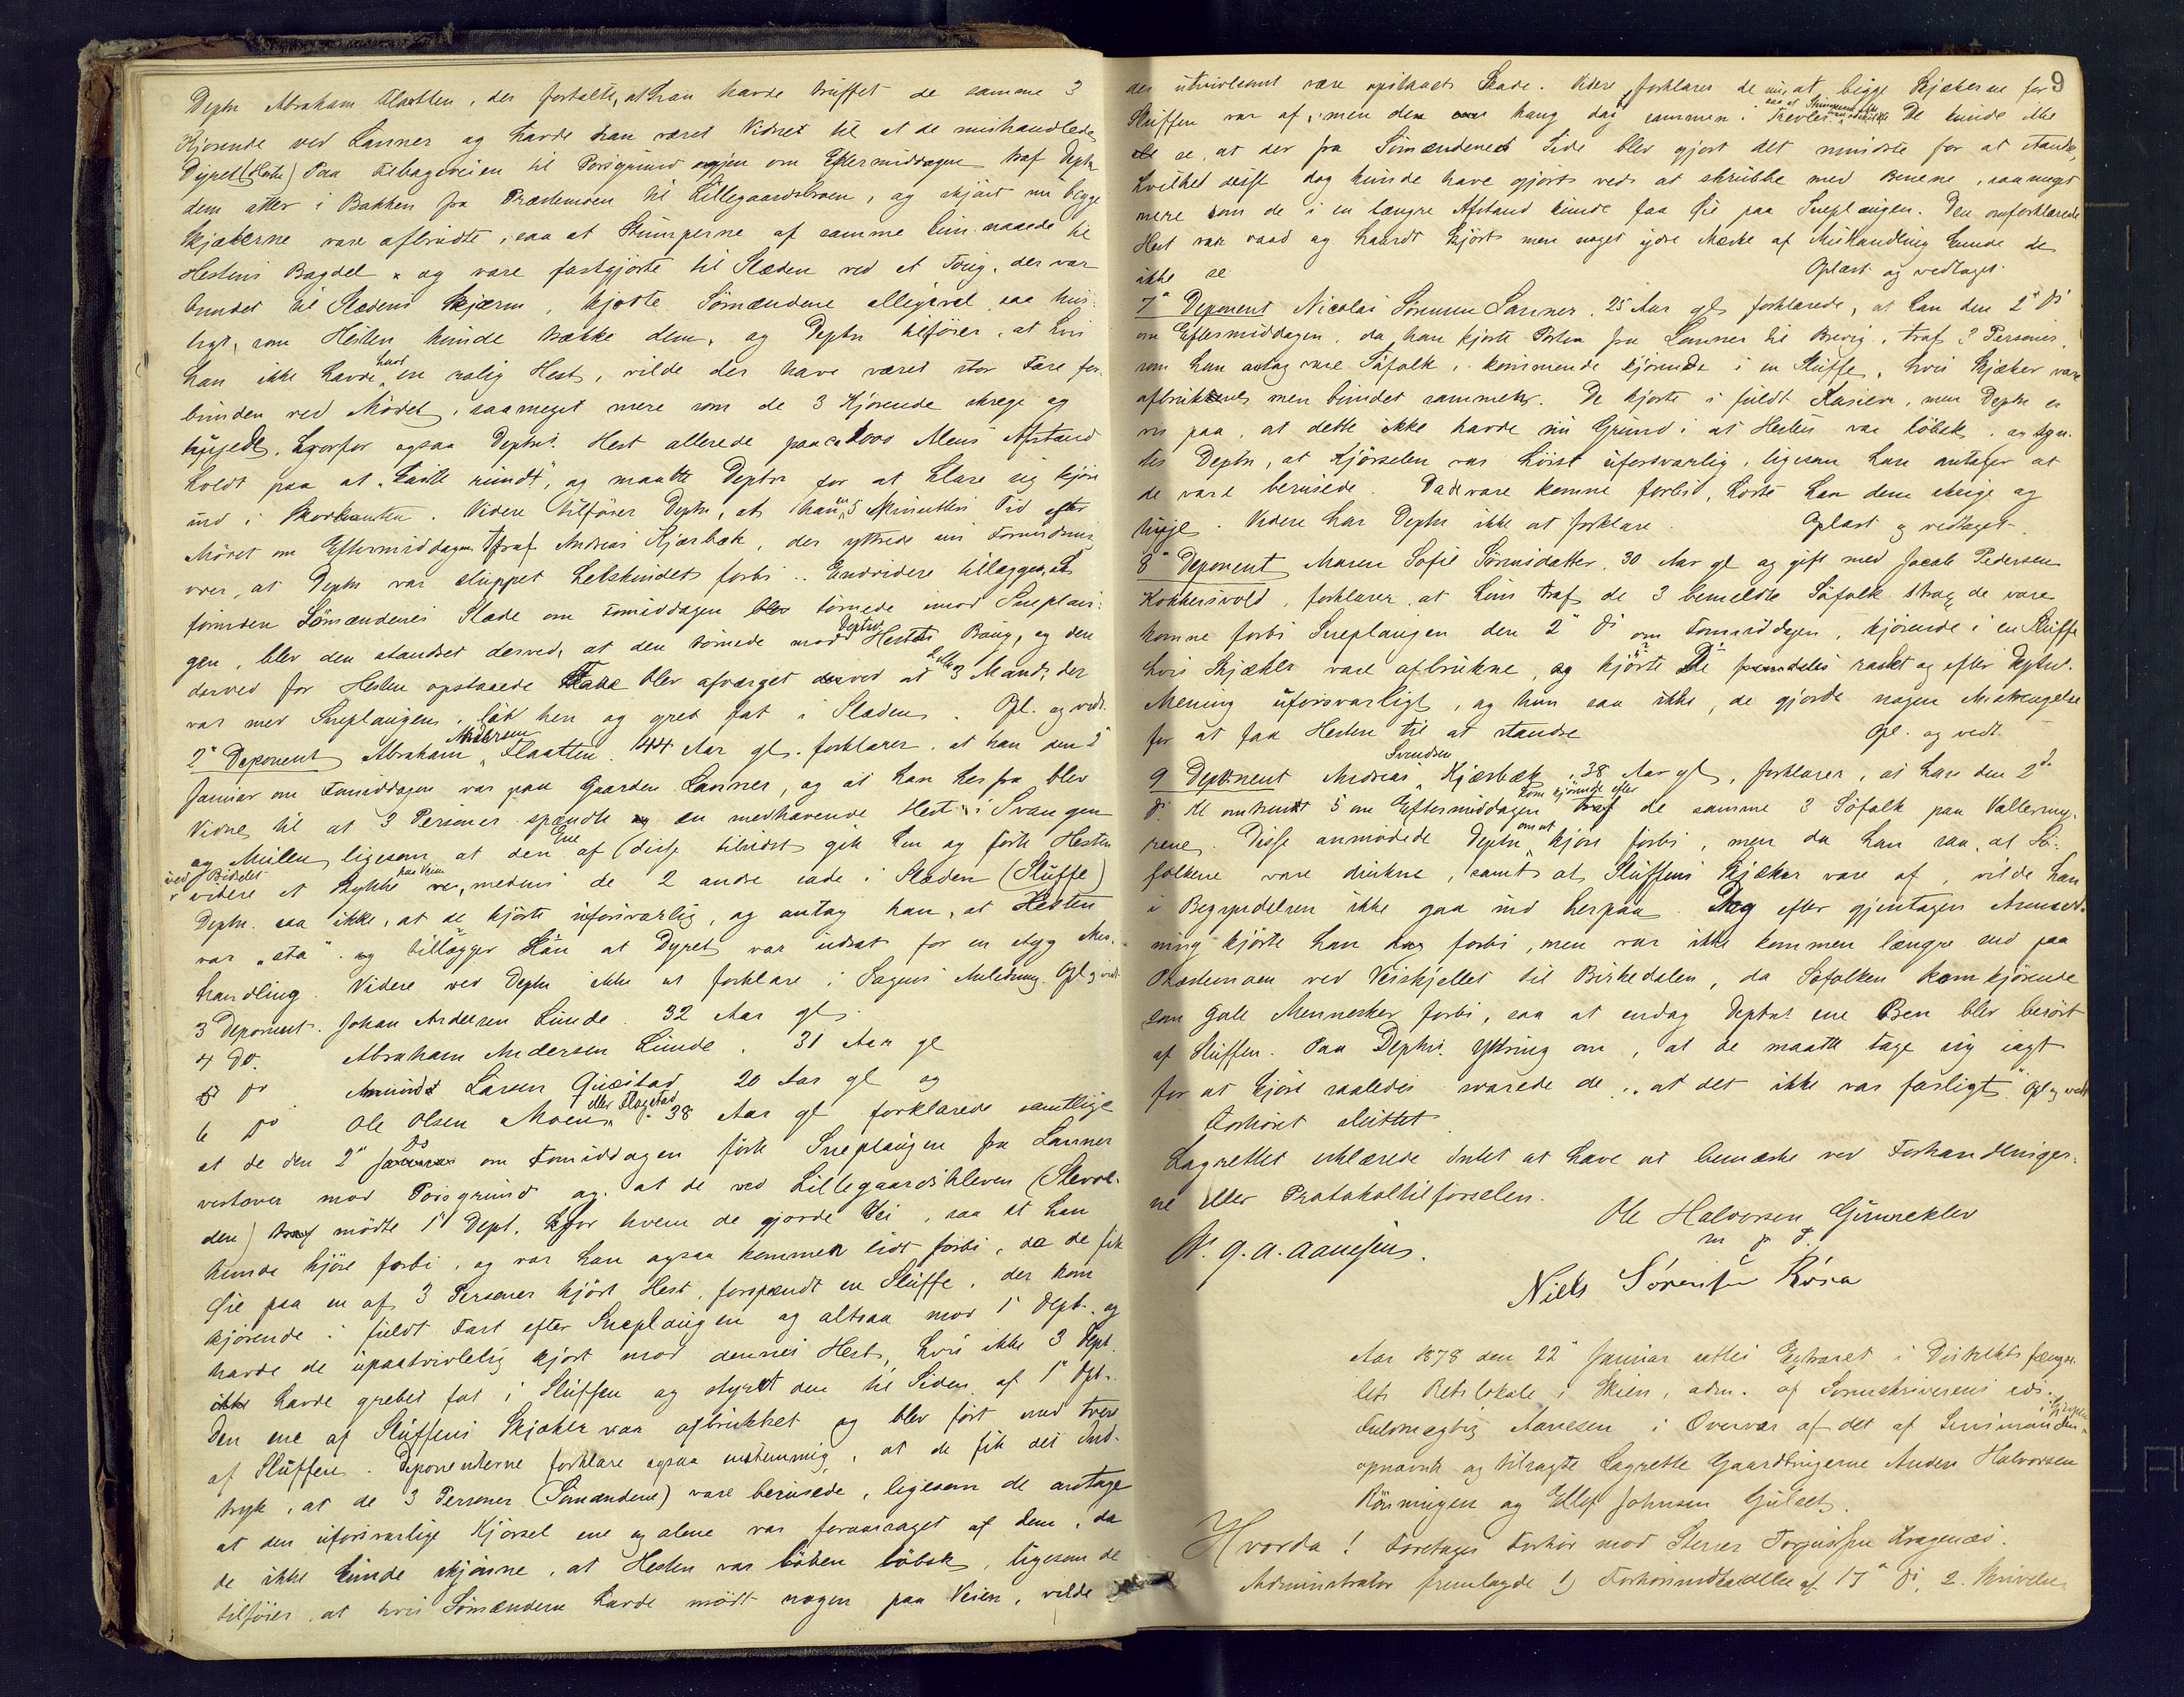 Deptn Abraham Flaatten, der fortalte, at han havde truffet de samme 3
Kjørende ved Lanner og havde han været Vidnet til at de mishandlede
Dyret (Hesten) Paa Tilbageveien til Porsgrund igjen om Eftermiddagen traf Deptn
dem atter i Bakken fra Præstemoen til Lillegaardsbroen, og skjønt nu begge
Skjækerne vare afbrudte, saa at Stumperne af samme kun naaede til
Hestens Bagdel og vare fastgjorte til Slæden ved et Toug, der var
bundet til Slædens Skjærm, kjørte Sømændene alligevel saa hur-
tigt, som Hesten kunde trække dem, og Deptn tilføier, at hvis
han ikke havde havt en rolig Hest, vilde der have været stor Fare for-
bunden ved Mødet, saameget mere som de 3 Kjørende skrege og
hujede, hvorfor ogsaa Deptns Hest allerede paa ca 1000 Alens Afstand
holdt paa at "kaste rundt", og maatte Deptn for at klare sig kjøre
ind i Skovkanten. Videre tilføier Deptn, at han 5 Minutters Tid efter
Mødet om Eftermiddagen traf Andreas Kjærbæk, der yttrede sin Forundring
over, at Deptn var sluppet helskindet forbi. Endvidere tillægges, at
forinden Sømændenes Slæde om Formiddagen tørnede imod Sneplou-
gen, blev den standset derved, at den tørnede mod Deptns Hests Boug, og den
derved for Hesten opstaaede Fare blev afværget derved at 2 eller 3 Mand, der
var med Sneplougen, løb hen og greb fat i Slæden. Opl. og vedt.
2" Deponent Abraham Andersen Flaatten 44 Aar gl. forklarer, at han den 2"
Januar om Formiddagen var paa Gaarden Lanner, og at han herfra blev
Vidne til at 3 Personer spændte en medhavende Hest i Svangen
og Mulen, ligesom at den Ene af disse tilsidst gik hen og førte Hesten
ved Bidslet videre et Stykke paa Veien, medens de 2 andre sade i Slæden (Sluffe)
Deptn. saa ikke, at de kjørte uforsvarlig, og antog han, at Hesten
var "sta" og tillægger han at Dyret var udsat for en styg Mis-
handling. Videre ved Deptn ikke at forklare i Sagens Anledning. Opl og vedt
3 Deponent. Johan Andersen Lunde. 32 Aar gl.
4 Do. Abraham Andersen Lunde. 31 Aar gl
5 Do Amund Larsen 20 Aar gl og
6 Do Ole Olsen Moen eller Flagstad 38 Aar gl forklarede samtlige
at de den 2" Ds om Formiddagen førte Sneplougen fra Lanner
vestover mod Porsgrund og at de ved Lillegaardskleven (Stevol-
den) mødte 1" Dept. for hvem de gjorde Vei, saa at han
kunde kjøre forbi, og var han ogsaa kommen lidt forbi, da de fik
Øie paa en af 3 Personer kjørt Hest, forspændt en Sluffe, der kom
kjørende i fuldt Fart efter Sneplougen og altsaa mod 1" Dept. og
havde de upaatvivlelig kjørt mod dennes Hest, hvis ikke 3 Dept.
havde grebet fat i Sluffen og styret den til Siden af 1" Dpt.
Den ene af Sluffens Skjæker var afbrukket og blev ført med tvers
af Sluffen. Deponenterne forklare ogsaa enstemmig, at de fik det Ind-
tryk, at de 3 Personer (Sømændene) vare berusede, ligesom de antage
at den uforsvarlige Kjørsel ene og alene var foraarsaget af dem, da
de ikke kunde skjønne, at Hesten var løbsk, ligesom de
tilføier, at hvis Sømændene havde mødt nogen paa Veien, vilde
9
der utvivlsomt være opstaaet Skade. Videre forklarer de at begge Skjækerne for
Sluffen var af, men den hang dog sammen i Trevler. De kunde ikke
se, at der fra Sømændenes Side blev gjort det mindste for at standse,
hvilket disse dog kunde have gjort ved at skrubbe med Benene, saameget
mere som de i en længre Afstand kunde faa Øie paa Sneplougen. Den omforklarede
Hest var vaad og haardt kjørt men noget ydre Mærke af Mishandling kunde de
ikke se Oplæst og vedtaget.
7" Deponent Nicolai Sørensen Lanner, 25 Aar gl. forklarede, at han den 2" Ds
om Eftermiddagen, da han kjørte Posten fra Lanner til Brevig, traf 3 Personer,
som han antog vare Søfolk, kommende kjørende i en Sluffe, hvis Skjæker vare
afbrukkne men bundet sammen. De kjørte i fuldt Karriere, men Deptn er
vis paa, at dette ikke havde sin Grund i at Hesten var løbsk, og syn-
tes Deptn, at Kjørselen var høist uforsvarlig, ligesom han antager at
de vare berusede Da de vare komne forbi, hørte han dem skrige og
huje. Videre har Deptn ikke at forklare. Oplæst og vedtaget.
8" Deponent Maren Sofie Sørensdatter, 30 Aar gl og gift med Jacob Pedersen
Kokkersvold, forklarer, at hun traf de 3 bemeldte Søfolk strax de vare
komne forbi Sneplougen den 2" Ds om Formiddagen, kjørende i en Sluffe
hvis Skjæker vare afbrukne, og kjørte De fremdeles raskt og efter Deptns.
Mening uforsvarligt, og hun saa ikke, de gjorde nogen Anstrengelse
for at faa Hesten til at standse Opl. og vedt.
9 Deponent Andreas Svendsen Kjærbæk, 38 Aar gl, forklarer, at han den 2"
Ds Kl omtrent 5 om Eftermiddagen kom kjørende efter de samme 3 Søfolk paa Vallermy-
rene. Disse anmodede Deptn om at kjøre forbi, men da han saa, at Sø-
folkene vare drukne, samt at Sluffens Skjæker vare af, vilde han
i Begyndelsen ikke gaa ind herpaa. Dog efter gjentagen Anmod-
ning kjørte han forbi, men var ikke kommen længre end paa
Præstemoen ved Veiskjellet til Birkedalen, da Søfolken kom kjørende
som gale Mennesker forbi, saa at endog Deptns ene Ben blev berørt
af Sluffen. Paa Deptns. Yttring om, at de maatte tage sig iagt
for at kjøre saaledes svarede de, "at det ikke var farligt." Opl og vedt
Forhøret sluttet
Lagrettet erklærede Intet at have at bemærke ved Forhandlinger-
ne eller Protokoltilførselen.
Ole Halvorsen Gunneklev
m p P
N. G. A. Aanesen.
Niels Sørensen Rosa
Aar 1878 den 22" Januar sattes Extraret i Distriktsfængse-
lets Retslokale i Skien, adm. af Sorenskriverens eds.
Fuldmægtig Aanesen i Overvær af det af Lensmanden i Gjerpen
opnævnte og tilsagte Lagrette Gaardbrugerne Anders Halvorsen
Rønningen og Ellef Johnsen Gulset.
Hvorda! Foretages Forhør mod Sterer Torjussen Kragenæs.
Administrator fremlagde 1) Forhørsindkaldelse af 17" Ds, 2. Skrivelse